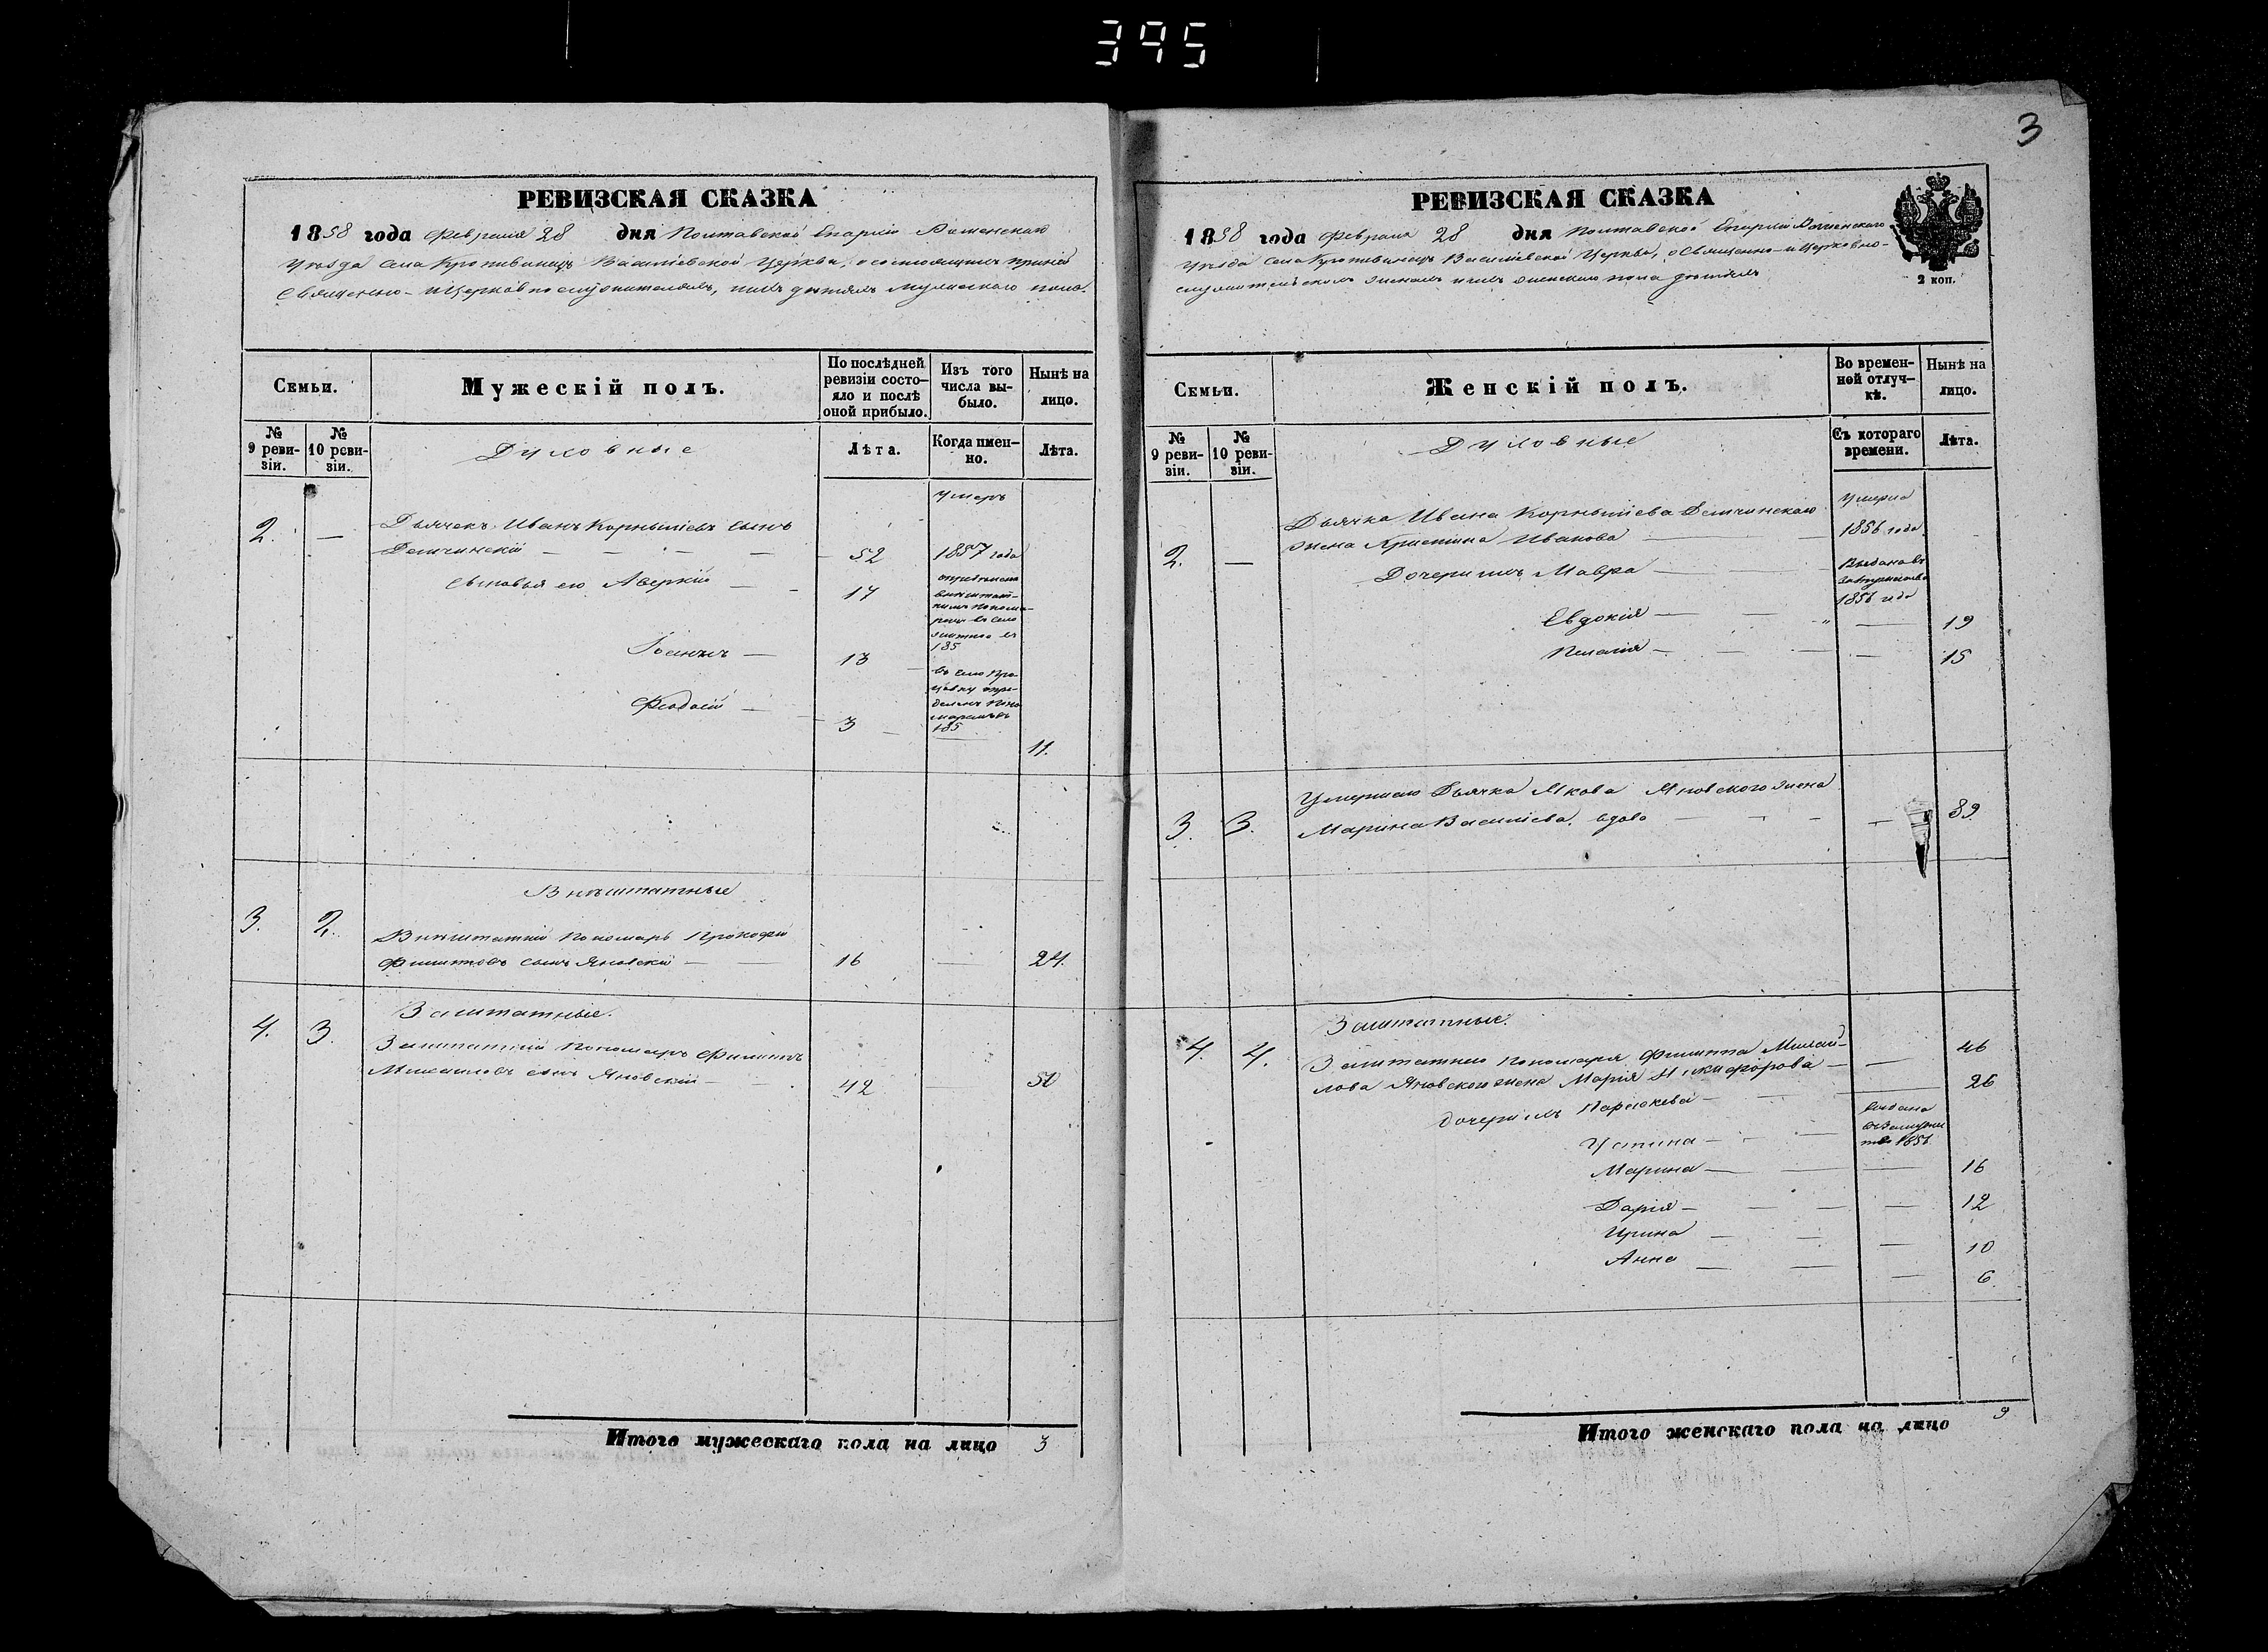 395
3
РЕВИЗСКАЯ СКАЗКА
1858 года Февраля 28 дня Полтавской Епархіи Роменскаго
Уѣзда Села Кропивинецъ Василіевской Церкви, о состоящихъ при ней
Священно- и Церковнослужителяхъ, и ихъ дѣтяхъ мужескаго пола.
Семьи.
Мужескій полъ.
По послѣдней ревизіи состо-
яло и послѣ
оной прибыло.
Изъ того
числа вы-
было.
Нынѣ на
лицо.
№
9 реви-
зіи.
№
10 реви-
зіи.
Духовные
Лѣта.
Когда имен-
но.
Лѣта.
умеръ
2. —
Дьячекъ Иванъ Корниліевъ сынъ
52 1857 года
Сыновья его Аверкій — 17
опредѣленъ
въ село
185
13
въ село
опре-
деленъ поно-
185
Феодосій — 3 — 11.
Внѣштатные
3. 2.
Внѣштатній Пономарь Прокофій
Филиповъ сынъ Яновскій — 16 — 24.
Заштатные.
4. 3.
Заштатній Пономарь Филиппъ
Михаиловъ сынъ Яновскій — 42 50
Итого мужескаго пола на лицо 3
РЕВИЗСКАЯ СКАЗКА
1858 года Февраля 28 дня Полтавской Епархіи Роменскаго
Уѣзда Села Кропивинецъ Василіевской Церкви, о Священно- и Церковно-
служительскихъ женахъ и ихъ женскаго пола дѣтяхъ
2 коп.
Семьи.
Женскій полъ.
Во времен-
ной отлуч-
кѣ.
Нынѣ на
лицо.
№
9 реви-
зіи.
№
10 реви-
зіи.
Духовные
Съ котораго
времени.
Лѣта.
Умерла
2. —
Дьячка Ивана Корниліева
жена Христина Иванова — 1856 года
Дочери ихъ Мавра — Выдана въ
замужество
1856 года
Евдокія — — 19
Пелагія — — 15
3. 3.
Умершаго Дьячка Якова Яновского жена
Марина Василіева, вдова — 39
Заштатные.
4. 4.
Заштатнаго Пономаря Филиппа Михай-
лова Яновского жена Марія Никифорова — — 46
дочери ихъ Параскева — — 26
Устина — выдана
въ замуже
тво 1856
Марина — — 16
Дарія — — 12
Ирина — — 10
Анна — — 6
Итого женскаго пола на лицо 9